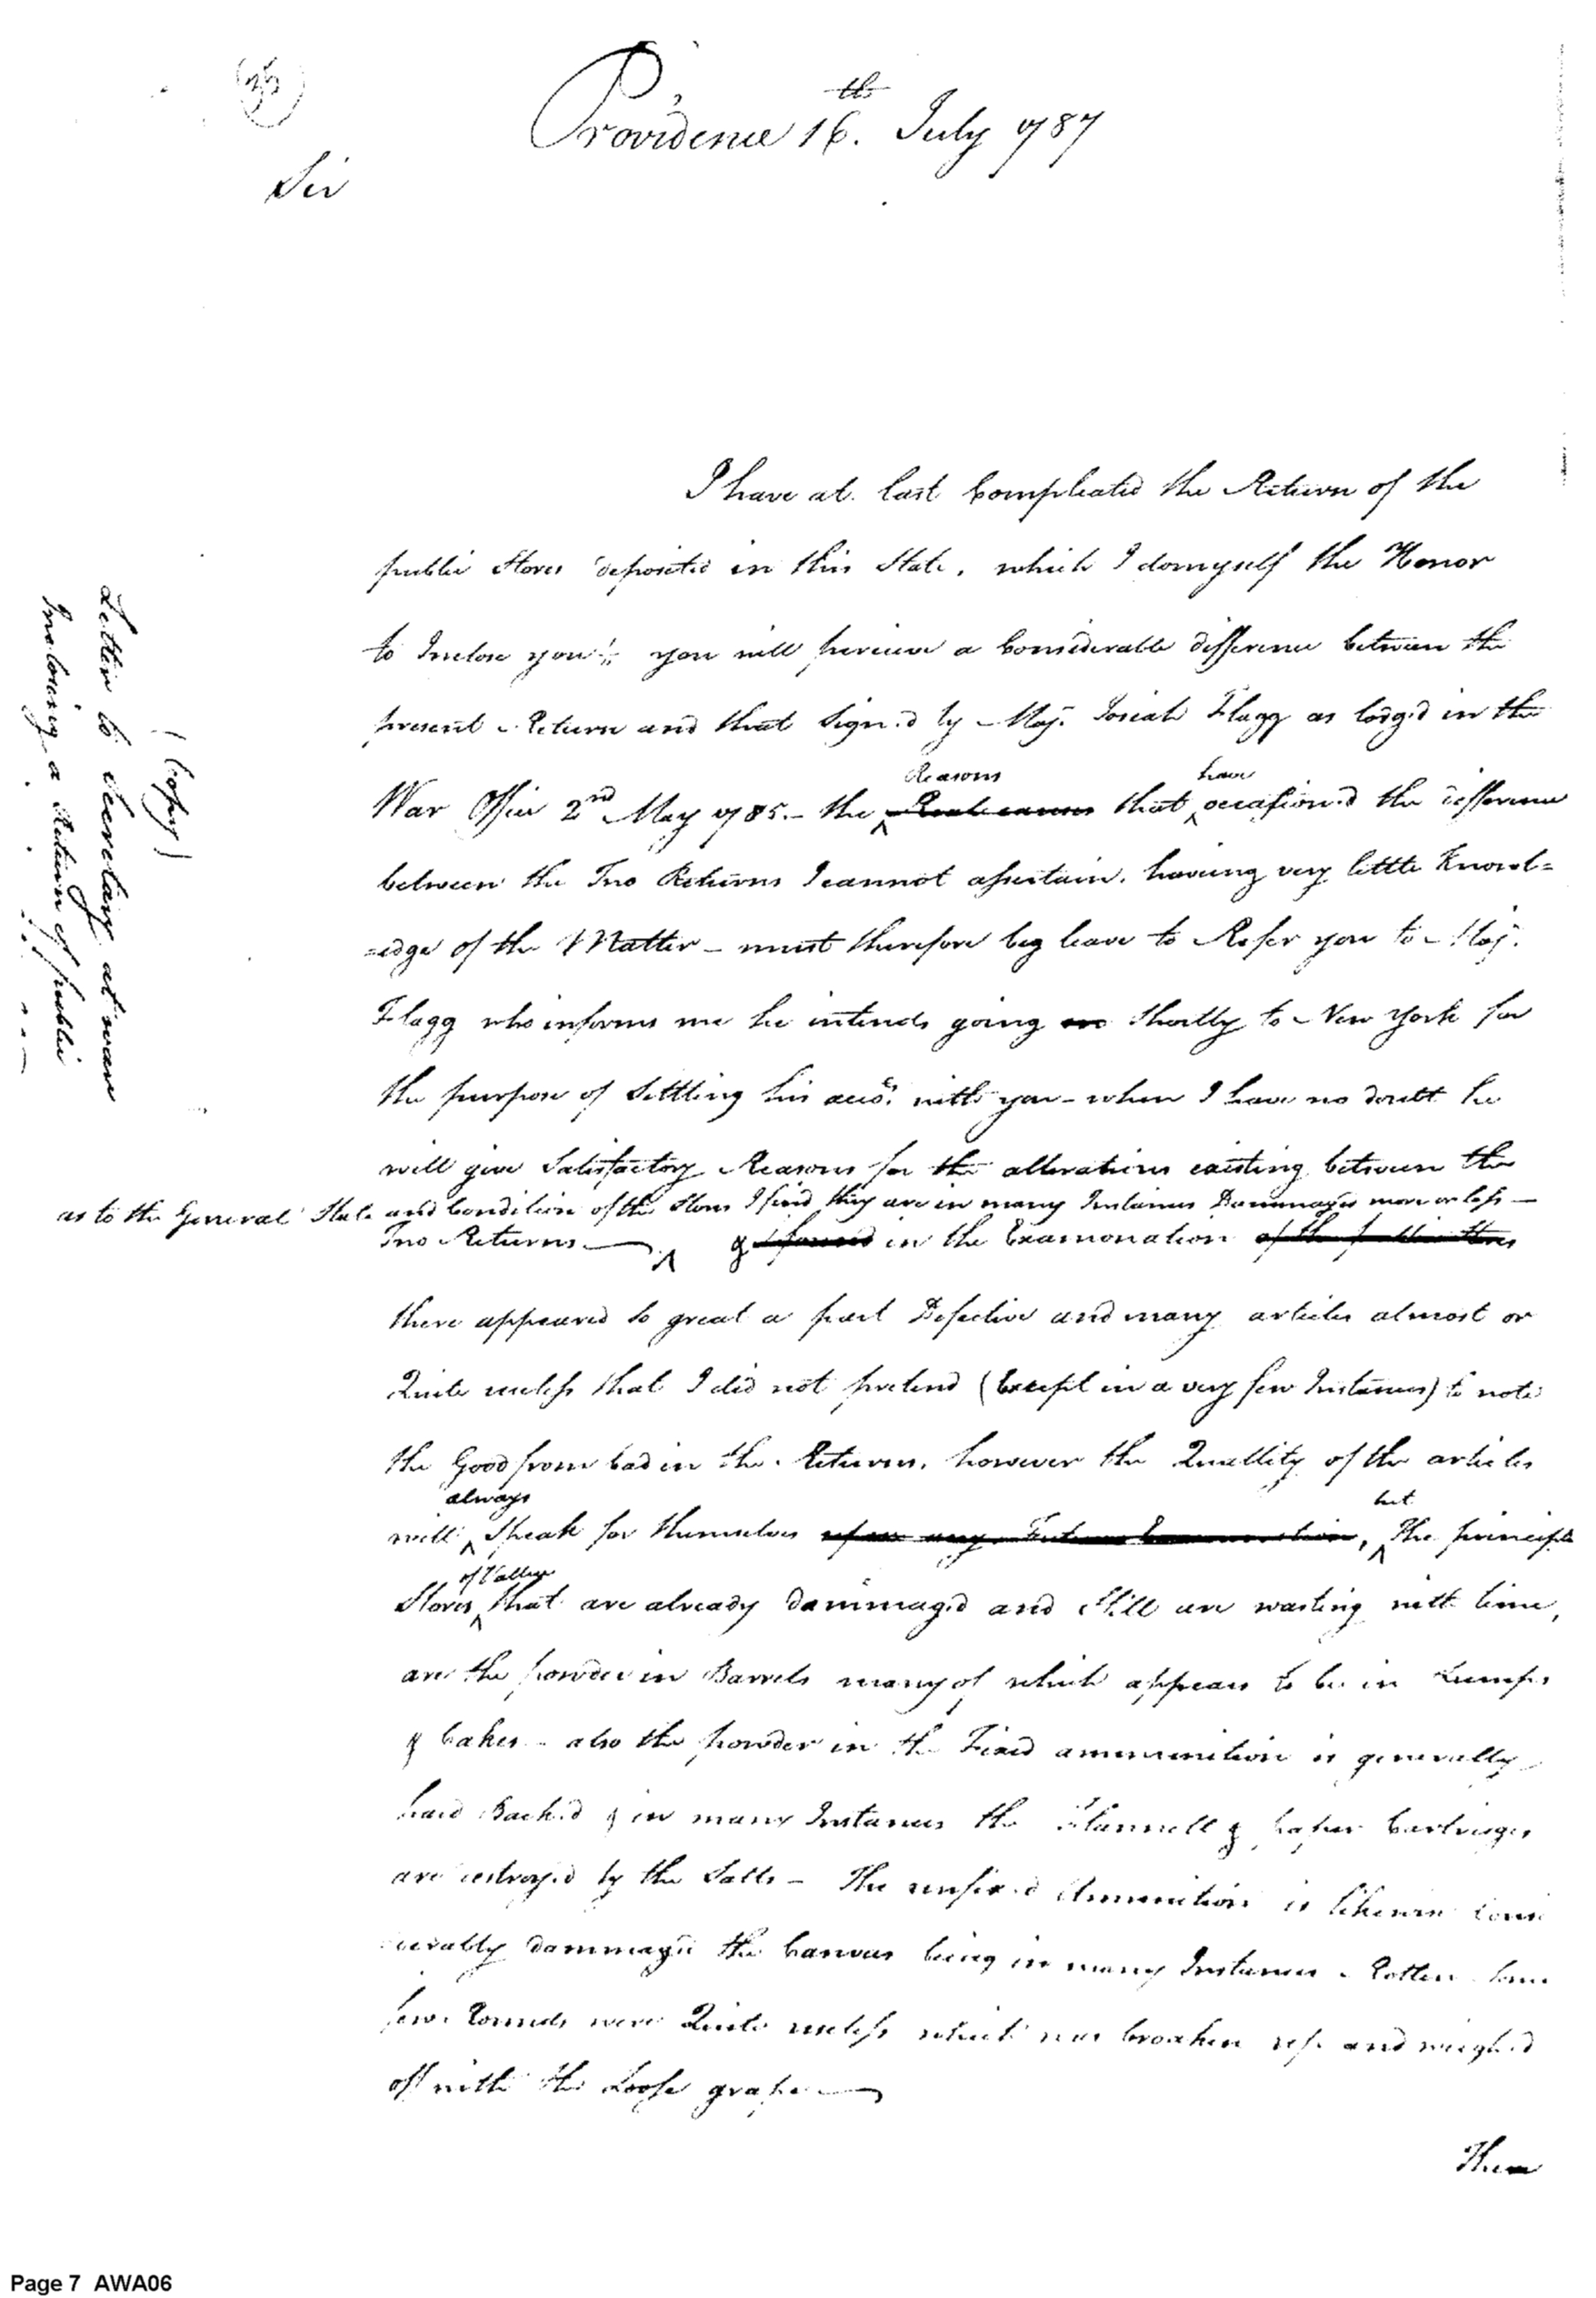 Providence 16th. July 1787
Sir
I have at last Compleated the Return of the
public Stores deposited in this State, which I do myself the Honor
to Inclose you. you will perceive a Considerable difference between the
present Return and that Sign'd by Maj. Josiah Flagg as lodg'd in the
Reasons have
War Office 2nd May 1785.- the that occasion'd the difference
between the Two Returns I cannot assertain, having very little Knowl=
=edge of the Matter - must therefore beg leave to Refer you to Maj.
Flagg who informs me he intends going Shortly to New York for
the purpose of Settling his accots. with you - when I have no doubt he
will give Satisfactory Reasons for the alterations existing between the
as to the General State and Condition of the Stores I find they are in many Instances Dammaged more or less -
Two Returns & in the Examonation of the public Stores
there appeared so great a part Defective and many articles almost or
Quite useless that I did not pretend (Except in a very few Instances) to note
the Good from bad in the Return, however the Quallity of the articles
always but
will Speak for themselves , The principle
of Vallue
Stores that are already dammaged and Still are wasting with time,
are the powder in Barrels many of which appears to be in Lumps
& Cakes - also the powder in the Fixed ammunition is generally
hard Back'd & in many Instances the Flannell & paper Cartrages
are destroy'd by the Salts - The unfix'd Ammunition is likewise Cons
iderably dammaged the Canvas being in many Instances Rotten Some
few Rounds were Quite useless which was broaken up and weigh'd
off with the Loose grape
These
(Copy)
Letter to Secretary at warr
Inclosing a Return of public
Page 7 AWA06